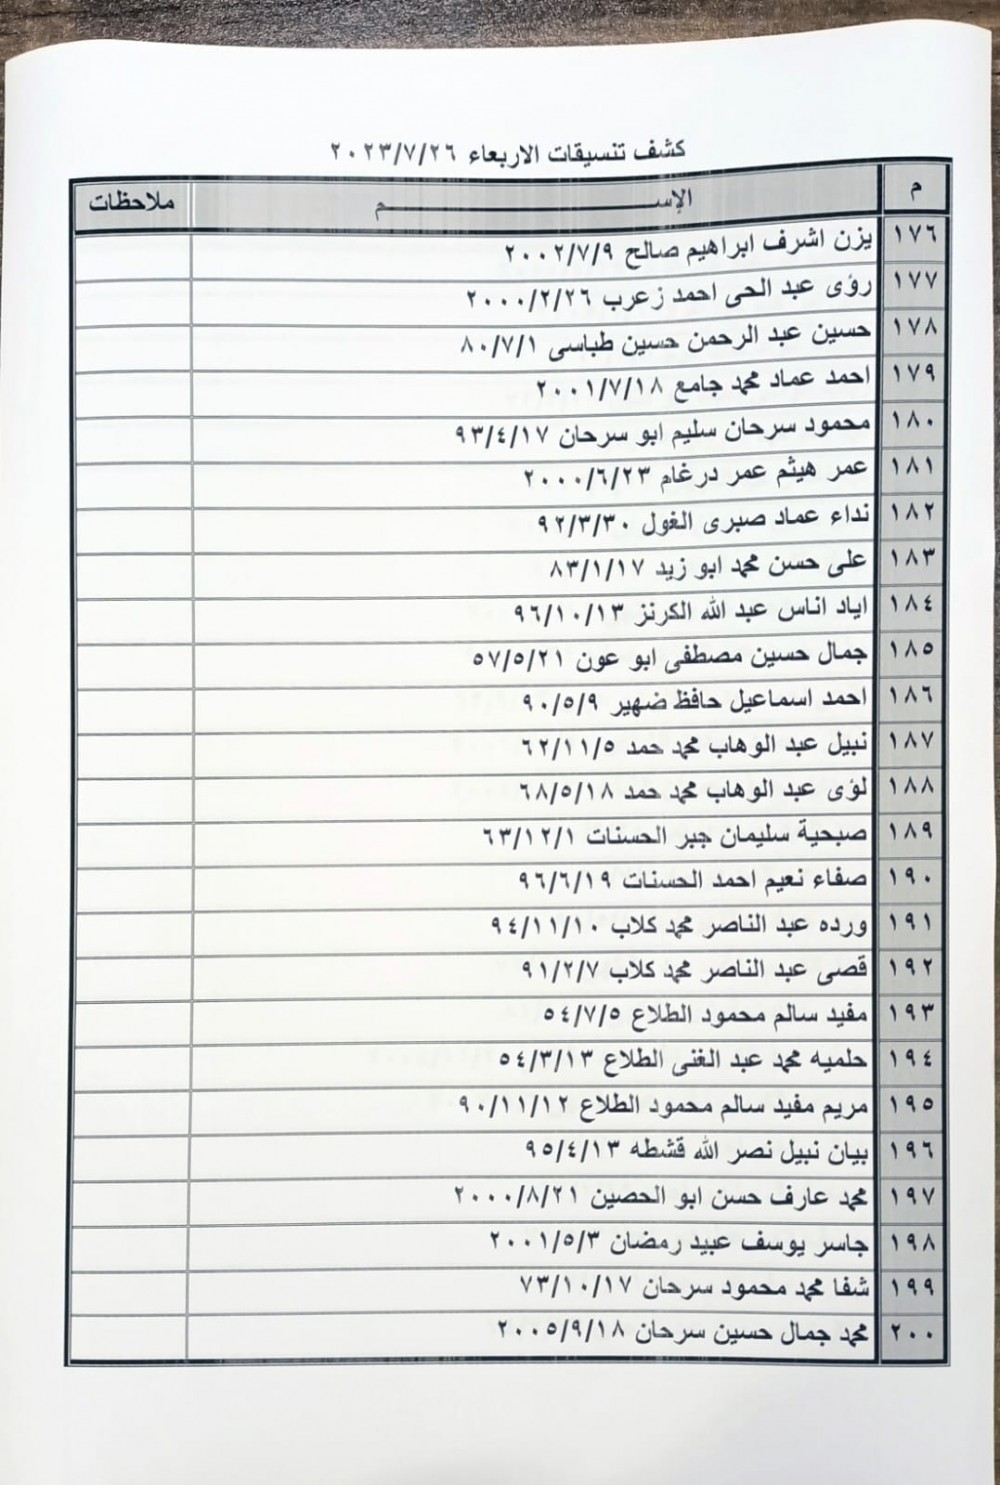 كشف تنسيقات الاربعاء ٢٠٢٣/٧/٢٦
م الإســـــــــم ملاحظات
١٧٦ يزن اشرف ابراهيم صالح ٢٠٠٢/٧/٩
١٧٧ رؤى عبد الحى احمد زعرب ٢٠٠٠/٢/٢٦
١٧٨ حسين عبد الرحمن حسين طباسى ٨٠/٧/١
١٧٩ احمد عماد محمد جامع ٢٠٠١/٧/١٨
١٨٠ محمود سرحان سليم ابو سرحان ٩٣/٤/١٧
١٨١ عمر هيثم عمر درغام ٢٠٠٠/٦/٢٣
١٨٢ نداء عماد صبرى الغول ٩٢/٣/٣٠
١٨٣ على حسن محمد ابو زيد ٨٣/١/١٧
١٨٤ اياد اناس عبد الله الكرنز ٩٦/١٠/١٣
١٨٥ جمال حسين مصطفى ابو عون ٥٧/٥/٢١
١٨٦ احمد اسماعيل حافظ ضهير ٩٠/٥/٩
١٨٧ نبيل عبد الوهاب محمد حمد ٦٢/١١/٥
١٨٨ لؤى عبد الوهاب محمد حمد ٦٨/٥/١٨
١٨٩ صبحية سليمان جبر الحسنات ٦٣/١٢/١
١٩٠ صفاء نعيم احمد الحسنات ٩٦/٦/١٩
١٩١ ورده عبد الناصر محمد كلاب ٩٤/١١/١٠
١٩٢ قصى عبد الناصر محمد كلاب ٩١/٢/٧
١٩٣ مفيد سالم محمود الطلاع ٥٤/٧/٥
١٩٤ حلميه محمد عبد الغنى الطلاع ٥٤/٣/١٣
١٩٥ مريم مفيد سالم محمود الطلاع ٩٠/١١/١٢
١٩٦ بيان نبيل نصر الله قشطه ٩٥/٤/١٣
١٩٧ محمد عارف حسن ابو الحصين ٢٠٠٠/٨/٢١
١٩٨ جاسر يوسف عبيد رمضان ٢٠٠١/٥/٣
١٩٩ شفا محمد محمود سرحان ٧٣/١٠/١٧
٢٠٠ محمد جمال حسين سرحان ٢٠٠٥/٩/١٨